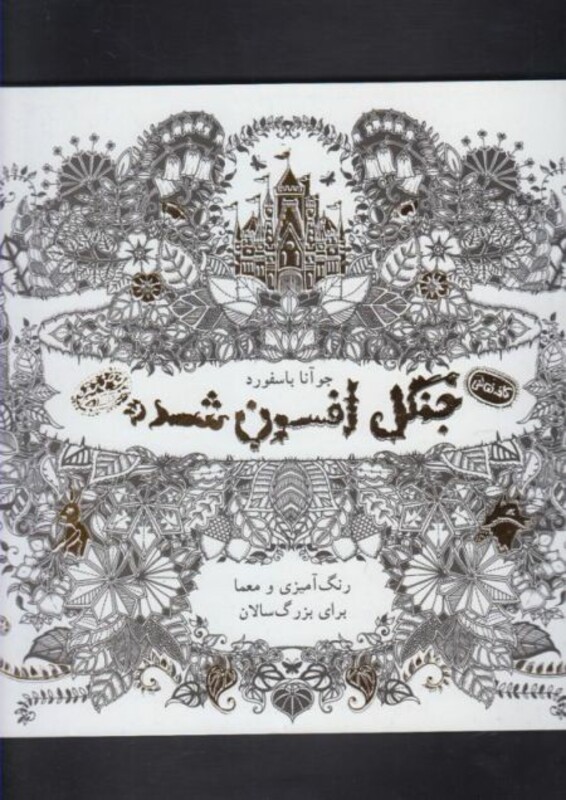 جوآنا باسفورد
جنگل افسون شده
رنگ‌آمیزی و معما
برای بزرگ‌سالان